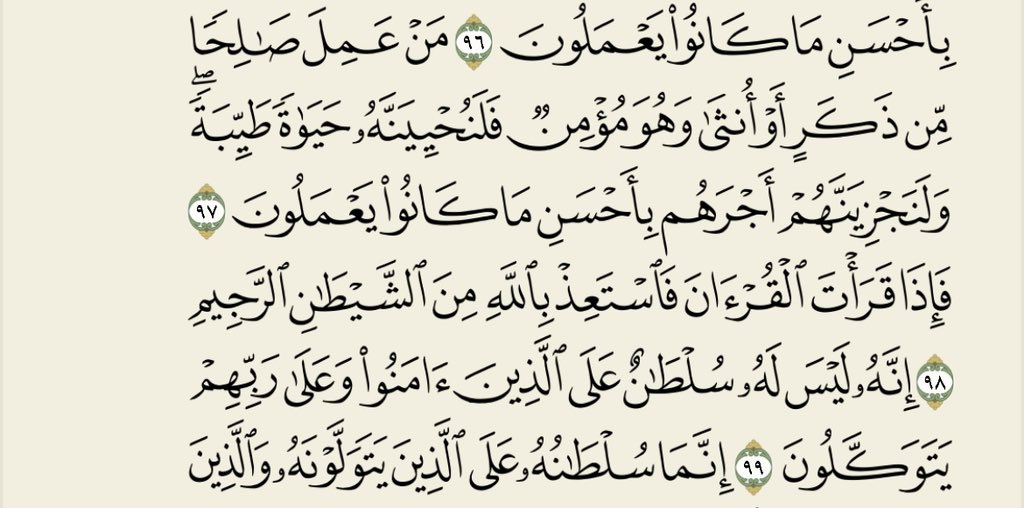 بِأَحۡسَنِ مَا كَانُواْ يَعۡمَلُونَ ٩٦ مَنۡ عَمِلَ صَٰلِحٗا
مِّن ذَكَرٍ أَوۡ أُنثَىٰ وَهُوَ مُؤۡمِنٞ فَلَنُحۡيِيَنَّهُۥ حَيَوٰةٗ طَيِّبَةٗۖ
وَلَنَجۡزِيَنَّهُمۡ أَجۡرَهُم بِأَحۡسَنِ مَا كَانُواْ يَعۡمَلُونَ ٩٧
فَإِذَا قَرَأۡتَ ٱلۡقُرۡءَانَ فَٱسۡتَعِذۡ بِٱللَّهِ مِنَ ٱلشَّيۡطَٰنِ ٱلرَّجِيمِ
٩٨ إِنَّهُۥ لَيۡسَ لَهُۥ سُلۡطَٰنٌ عَلَى ٱلَّذِينَ ءَامَنُواْ وَعَلَىٰ رَبِّهِمۡ
يَتَوَكَّلُونَ ٩٩ إِنَّمَا سُلۡطَٰنُهُۥ عَلَى ٱلَّذِينَ يَتَوَلَّوۡنَهُۥ وَٱلَّذِينَ